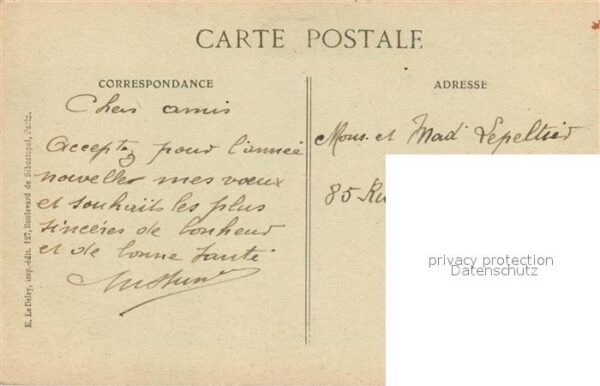 CARTE POSTALE
CORRESPONDANCE
Chers amis
Acceptez pour l'année
nouvelle mes vœux
et souhaits les plus
sincères de bonheur
et de bonne santé
ADRESSE
Mons. et Mad Lepeltier
85 Ru
privacy protection
Datenschutz
E. Le Deley, imp.-édit. 127, Boulevard de Sébastopol, Paris.